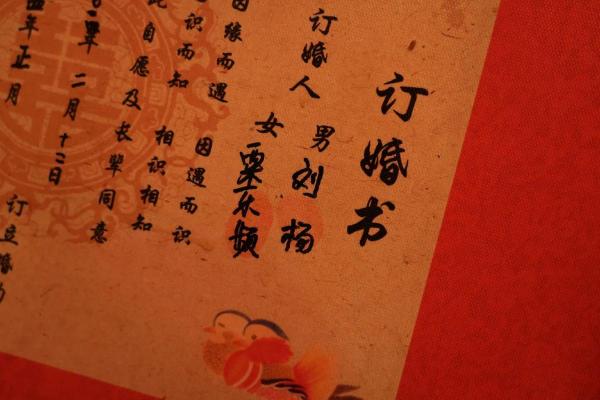 订婚书
订婚人 男 刘杨
女
因缘而遇 因遇而识
识而知 相识相知
自愿及长辈同意
年 二月十二日
年正月 订立婚